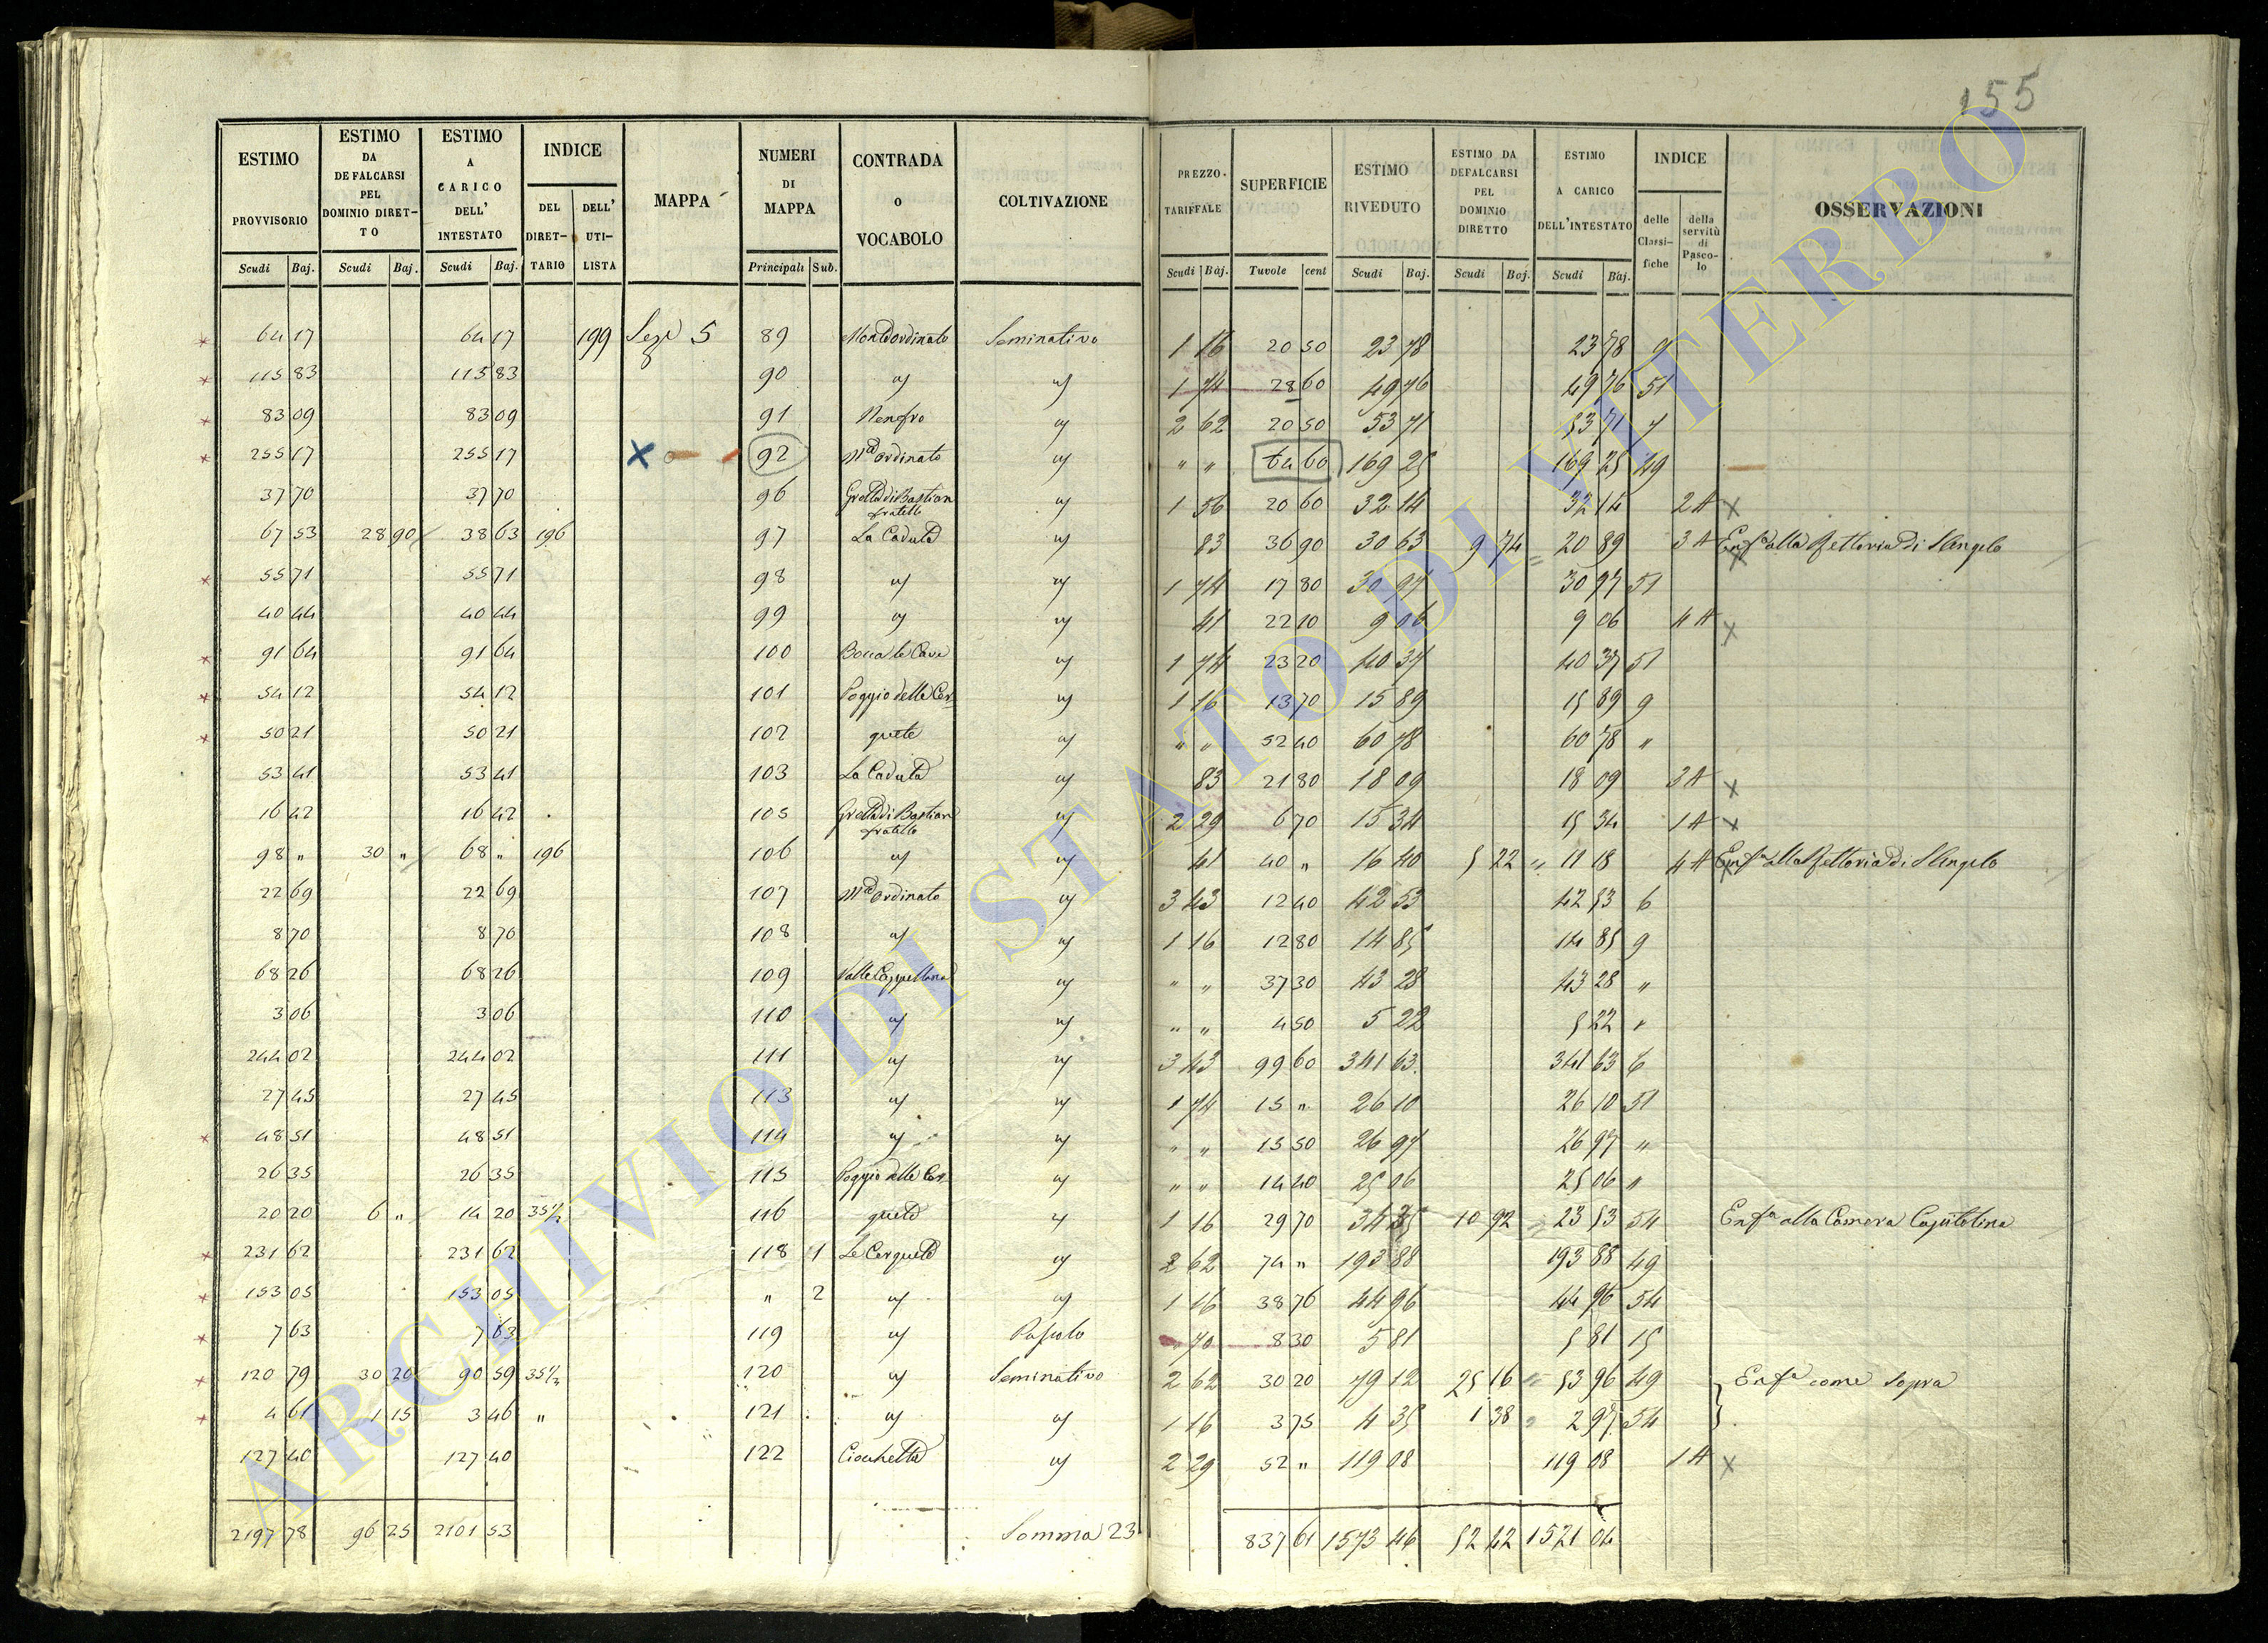 155
ESTIMO PROVVISORIO | ESTIMO DA DEFALCARSI PEL DOMINIO DIRET-TO | ESTIMO A CARICO DELL' INTESTATO | INDICE | MAPPA | NUMERI DI MAPPA | CONTRADA o VOCABOLO | COLTIVAZIONE | PREZZO TARIFFALE | SUPERFICIE | ESTIMO RIVEDUTO | ESTIMO DA DEFALCARSI PEL DOMINIO DIRETTO | ESTIMO A CARICO DELL'INTESTATO | INDICE | OSSERVAZIONI
DEL DIRET-TARIO | DELL' UTI-LISTA | delle Classi-fiche | della servitù di Pasco-lo
Scudi Baj. | Scudi Baj. | Scudi Baj. | Principali Sub. | Scudi Baj. | Tavole cent | Scudi Baj. | Scudi Baj. | Scudi Baj.
64 17 | 64 17 | 199 | Seze 5 | 89 | Monte ordinato | Seminativo | 1 16 | 20 50 | 23 78 | 23 78 | 9
115 83 | 115 83 | 90 | " | " | 1 74 | 28 60 | 49 76 | 49 76 | 51
83 09 | 83 09 | 91 | Nenfro | " | 2 62 | 20 50 | 53 71 | 53 71 | 7
255 17 | 255 17 | X | 92 | Me ordinato | " | " " | 64 60 | 169 25 | 169 25 | 49
37 70 | 37 70 | 96 | Grotta di Bastian fratello | " | 1 56 | 20 60 | 32 14 | 32 14 | 2 A | x
67 53 | 28 90 | 38 63 | 196 | 97 | La Caduta | " | 83 | 36 90 | 30 63 | 9 74 | 20 89 | 3 A | Enfa alla Rettoria di S Angelo
55 71 | 55 71 | 98 | " | " | 1 74 | 17 80 | 30 97 | 30 97 | 51
40 44 | 40 44 | 99 | " | " | 41 | 22 10 | 9 06 | 9 06 | 4 A | x
91 64 | 91 64 | 100 | Bocca le Cave | " | 1 74 | 23 20 | 40 37 | 40 37 | 51
54 12 | 54 12 | 101 | Poggio delle Cer- | " | 1 16 | 13 70 | 15 89 | 15 89 | 9
50 21 | 50 21 | 102 | quete | " | " " | 52 40 | 60 78 | 60 78 | "
53 41 | 53 41 | 103 | La Caduta | " | 83 | 21 80 | 18 09 | 18 09 | 3 A | x
16 42 | 16 42 | 105 | Grotta di Bastian fratello | " | 2 29 | 6 70 | 15 34 | 15 34 | 1 A | x
98 " | 30 " | 68 " | 196 | 106 | " | " | 41 | 40 " | 16 40 | 5 22 | 11 18 | 4 A | Enfa alla Rettoria di S Angelo
22 69 | 22 69 | 107 | Me ordinato | " | 3 43 | 12 40 | 42 53 | 42 53 | 6
8 70 | 8 70 | 108 | " | " | 1 16 | 12 80 | 14 85 | 14 85 | 9
68 26 | 68 26 | 109 | Valle Cappellana | " | " " | 37 30 | 43 28 | 43 28 | "
3 06 | 3 06 | 110 | " | " | " " | 4 50 | 5 22 | 5 22 | "
244 02 | 244 02 | 111 | " | " | 3 43 | 99 60 | 341 63 | 341 63 | 6
27 45 | 27 45 | 113 | " | " | 1 74 | 15 " | 26 10 | 26 10 | 51
48 51 | 48 51 | 114 | " | " | " " | 15 50 | 26 97 | 26 97 | "
26 35 | 26 35 | 115 | Poggio delle Cer- | " | " " | 14 40 | 25 06 | 25 06 | "
20 20 | 6 " | 14 20 | 35 1/2 | 116 | quete | " | 1 16 | 29 70 | 34 45 | 10 92 | 23 53 | 54 | Enfa alla Camera Capitolina
231 62 | 231 62 | 118 | 1 | Le Cerquete | " | 2 62 | 74 " | 193 88 | 193 88 | 49
153 05 | 153 05 | " | 2 | " | " | 1 16 | 38 76 | 44 96 | 44 96 | 54
7 63 | 7 63 | 119 | " | Pascolo | 70 | 8 30 | 5 81 | 5 81 | 15
120 79 | 30 20 | 90 59 | 35 1/2 | 120 | " | Seminativo | 2 62 | 30 20 | 79 12 | 25 16 | 53 96 | 49 | Enfa come Sopra
4 61 | 1 15 | 3 46 | " | 121 | " | " | 1 16 | 3 75 | 4 35 | 1 38 | 2 97 | 54
127 40 | 127 40 | 122 | Ciocchetta | " | 2 29 | 52 " | 119 08 | 119 08 | 1 A | x
2197 78 | 96 25 | 2101 53 | Somma 23 | 837 61 | 1573 46 | 52 42 | 1521 04
ARCHIVIO DI STATO DI VITERBO